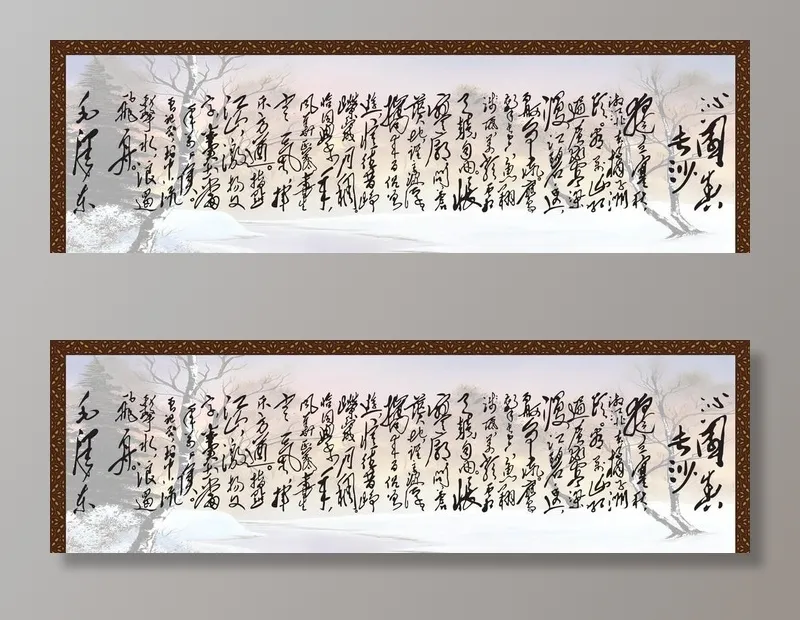 沁園春
長沙
獨立寒秋
湘江北去橘子洲
頭看萬山紅
遍層林盡染
漫江碧透百
舸爭流鷹
擊長空魚翔
淺底萬類霜
天競自由悵
寥廓問蒼
茫大地誰主沉浮
攜來百侶曾遊
憶往昔崢
嶸歲月稠
恰同學少年
風華正茂書生
意氣揮
斥方遒指點
江山激揚文
字糞土當
年萬戶侯
曾記否到中流
擊水浪遏
飛舟
毛澤東
沁園春
長沙
獨立寒秋
湘江北去橘子洲
頭看萬山紅
遍層林盡染
漫江碧透百
舸爭流鷹
擊長空魚翔
淺底萬類霜
天競自由悵
寥廓問蒼
茫大地誰主沉浮
攜來百侶曾遊
憶往昔崢
嶸歲月稠
恰同學少年
風華正茂書生
意氣揮
斥方遒指點
江山激揚文
字糞土當
年萬戶侯
曾記否到中流
擊水浪遏
飛舟
毛澤東